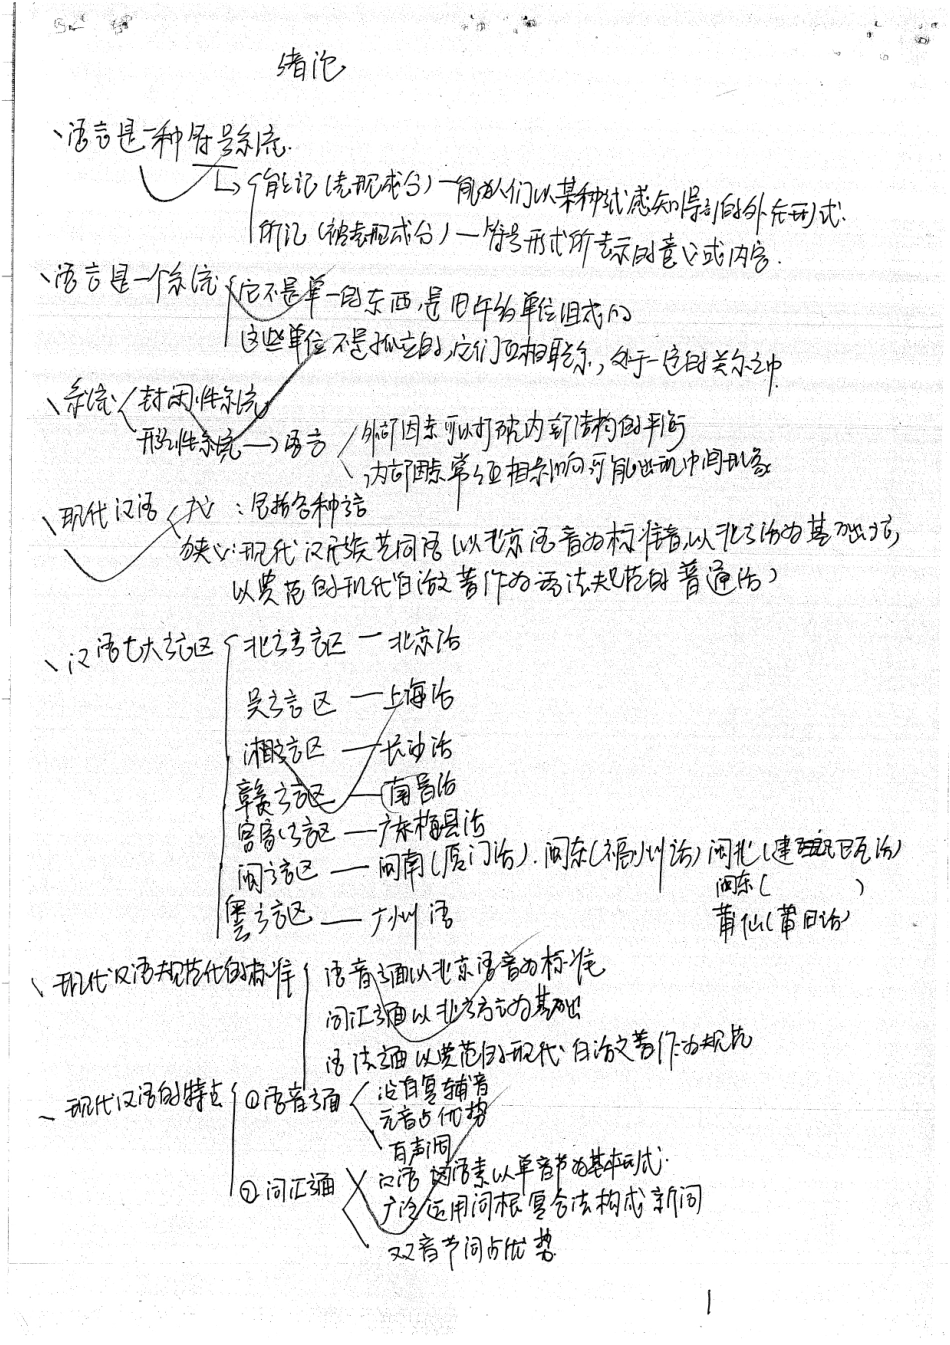 绪论
、语言是一种符号系统.
能记(表现成分)—能为人们以某种方式感知得到的外在形式.
所记(被表现成分)—符号形式所表示的意义或内容.
、语言是一个系统 它不是单一的东西,是由许多单位组成的
这些单位不是孤立的,它们互相联系,处于一定的关系之中
、系统 封闭性系统
开放性系统→语言 外部因素可以打破内部结构的平衡
内部因素常互相影响可能出现中间现象
、现代汉语 广义:包括各种方言
狭义:现代汉民族共同语(以北京语音为标准音,以北方话为基础方言,
以典范的现代白话文著作为语法规范的普通话)
、汉语七大方言区 北方方言区—北京话
吴方言区—上海话
湘方言区—长沙话
赣方言区—南昌话
客家方言区—广东梅县话
闽方言区—闽南(厦门话).闽东(福州话)闽北(建瓯话)
闽东( )
莆仙(莆田话)
粤方言区—广州话
、现代汉语规范化的标准 语音方面以北京语音为标准
词汇方面以北方方言为基础
语法方面以典范的现代白话文著作为规范
、现代汉语的特点 ①语音方面 没有复辅音
元音占优势
有声调
②词汇方面 汉语的语素以单音节为基本形式.
广泛运用词根复合法构成新词
双音节词占优势
1